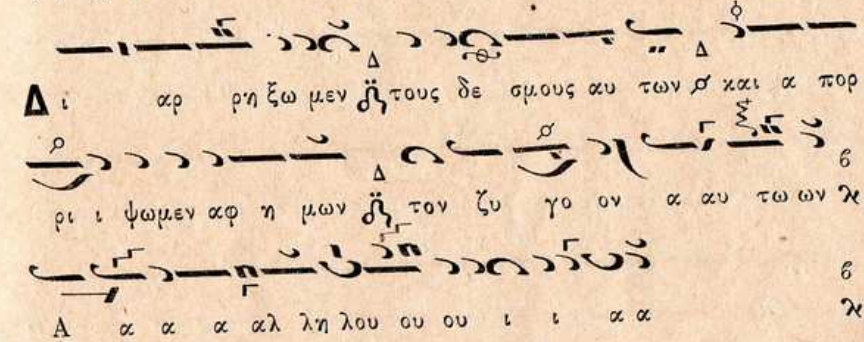 Δ ι αρ ρη ξω μεν τους δε σμους αυ των και α πορ
ρι ι ψωμεν αφ η μων τον ζυ γο ον α αυ τω ων
Α α α α αλ λη λου ου ου ι ι α α